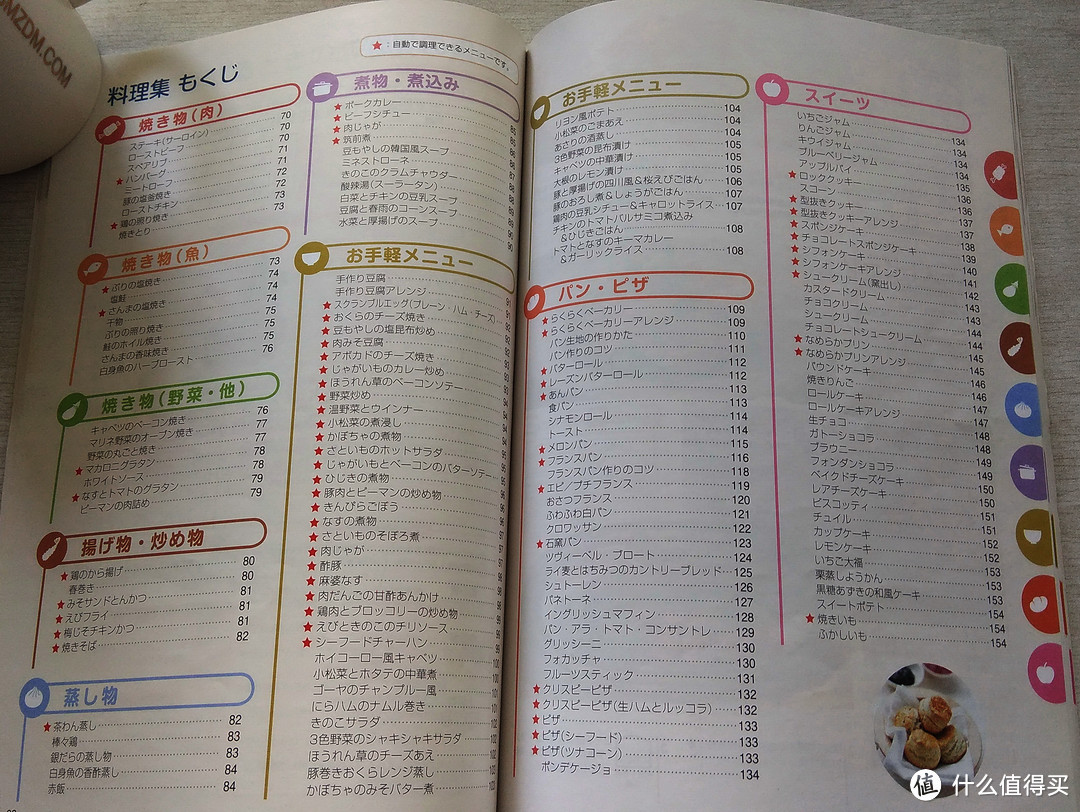 MZDM.COM
★：自動で調理できるメニューです。
料理集 もくじ
焼き物（肉）
ステーキ（サーロイン） 70
ローストビーフ 70
スペアリブ 71
★ハンバーグ 71
ミートローフ 72
豚の塩釜焼き 72
ローストチキン 73
★鶏の照り焼き 73
焼きとり
焼き物（魚）
★ぶりの塩焼き 73
塩鮭 74
★さんまの塩焼き 74
干物 74
ぶりの照り焼き 75
鮭のホイル焼き 75
さんまの香味焼き 75
白身魚のハーブロースト 76
焼き物（野菜・他）
キャベツのベーコン焼き 76
マリネ野菜のオーブン焼き 77
野菜の丸ごと焼き 77
★マカロニグラタン 78
ホワイトソース 78
★なすとトマトのグラタン 79
ピーマンの肉詰め 79
揚げ物・炒め物
★鶏のから揚げ 80
春巻き 80
★みそサンドとんかつ 81
★えびフライ 81
★梅じそチキンかつ 81
★焼きそば 82
蒸し物
★茶わん蒸し 82
棒々鶏 83
銀だらの蒸し物 83
白身魚の香酢蒸し 84
赤飯 84
煮物・煮込み
★ポークカレー
★ビーフシチュー 85
★肉じゃが
★筑前煮
豆もやしの韓国風スープ
ミネストローネ
きのこのクラムチャウダー
酸辣湯（スーラータン）
白菜とチキンの豆乳スープ
豆腐と春雨のコーンスープ
水菜と厚揚げのスープ 90
お手軽メニュー
手作り豆腐
手作り豆腐アレンジ 91
★スクランブルエッグ（プレーン・ハム・チーズ）
★おくらのチーズ焼き 92
★豆もやしの塩昆布炒め
★肉みそ豆腐
★アボカドのチーズ焼き
★じゃがいものカレー炒め
★ほうれん草のベーコンソテー
★野菜炒め
★温野菜とウインナー
★小松菜の煮浸し
★かぼちゃの煮物
★さといものホットサラダ
★じゃがいもとベーコンのバターソテー
★ひじきの煮物
★豚肉とピーマンの炒め物
★きんぴらごぼう
★なすの煮物
★さといものそぼろ煮
★肉じゃが
★酢豚
★麻婆なす
★肉だんごの甘酢あんかけ
★鶏肉とブロッコリーの炒め物
★えびときのこのチリソース
★シーフードチャーハン
ホイコーロー風キャベツ
小松菜とホタテの中華煮 100
ゴーヤのチャンプルー風 101
にらハムのナムル巻き 101
きのこサラダ
3色野菜のシャキシャキサラダ
ほうれん草のチーズあえ
豚巻きおくらレンジ蒸し
かぼちゃのみそバター煮 103
お手軽メニュー
リヨン風ポテト 104
小松菜のごまあえ 104
あさりの酒蒸し 104
3色野菜の昆布漬け 105
キャベツの中華漬け 105
大根のレモン漬け 105
豚と厚揚げの四川風＆桜えびごはん 106
豚のおろし煮＆しょうがごはん 107
鶏肉の豆乳シチュー＆キャロットライス 107
チキンのトマトバルサミコ煮込み
＆ひじきごはん 108
トマトとなすのキーマカレー
＆ガーリックライス 108
パン・ピザ
★らくらくベーカリー 109
★らくらくベーカリーアレンジ 109
パン生地の作りかた 110
パン作りのコツ 111
★バターロール 112
★レーズンバターロール 112
★あんパン 113
食パン 113
シナモンロール 114
トースト 114
★メロンパン 115
★フランスパン 116
フランスパン作りのコツ 118
★エピ／プチフランス 119
おさつフランス 120
ふわふわ白パン 121
クロワッサン 122
★石窯パン 123
ツヴィーベル・ブロート 124
ライ麦とはちみつのカントリーブレッド 125
シュトーレン 126
パネトーネ 127
イングリッシュマフィン 128
パン・アラ・トマト・コンサントレ 129
グリッシーニ 130
フォカッチャ 130
フルーツスティック 131
★クリスピーピザ 132
★クリスピーピザ（生ハムとルッコラ） 132
★ピザ 133
★ピザ（シーフード） 133
★ピザ（ツナコーン） 133
ポンデケージョ 134
スイーツ
いちごジャム 134
りんごジャム 134
キウイジャム 134
ブルーベリージャム 134
アップルパイ 135
★ロッククッキー 136
スコーン 136
★型抜きクッキー 137
★型抜きクッキーアレンジ 137
★スポンジケーキ 138
★チョコレートスポンジケーキ 139
★シフォンケーキ 140
★シフォンケーキアレンジ 141
★シュークリーム（窯出し） 142
カスタードクリーム 143
チョコクリーム 143
シュークリーム 144
チョコレートシュークリーム 144
★なめらかプリン 145
★なめらかプリンアレンジ 145
パウンドケーキ 146
焼きりんご 146
ロールケーキ 147
ロールケーキアレンジ 147
生チョコ 148
ガトーショコラ 148
ブラウニー 149
フォンダンショコラ 149
ベイクドチーズケーキ 150
レアチーズケーキ 150
ビスコッティ 151
チュイル 151
カップケーキ 152
レモンケーキ 152
いちご大福 153
栗蒸しようかん 153
黒糖あずきの和風ケーキ 153
スイートポテト 154
★焼きいも 154
ふかしいも 154
值 什么值得买